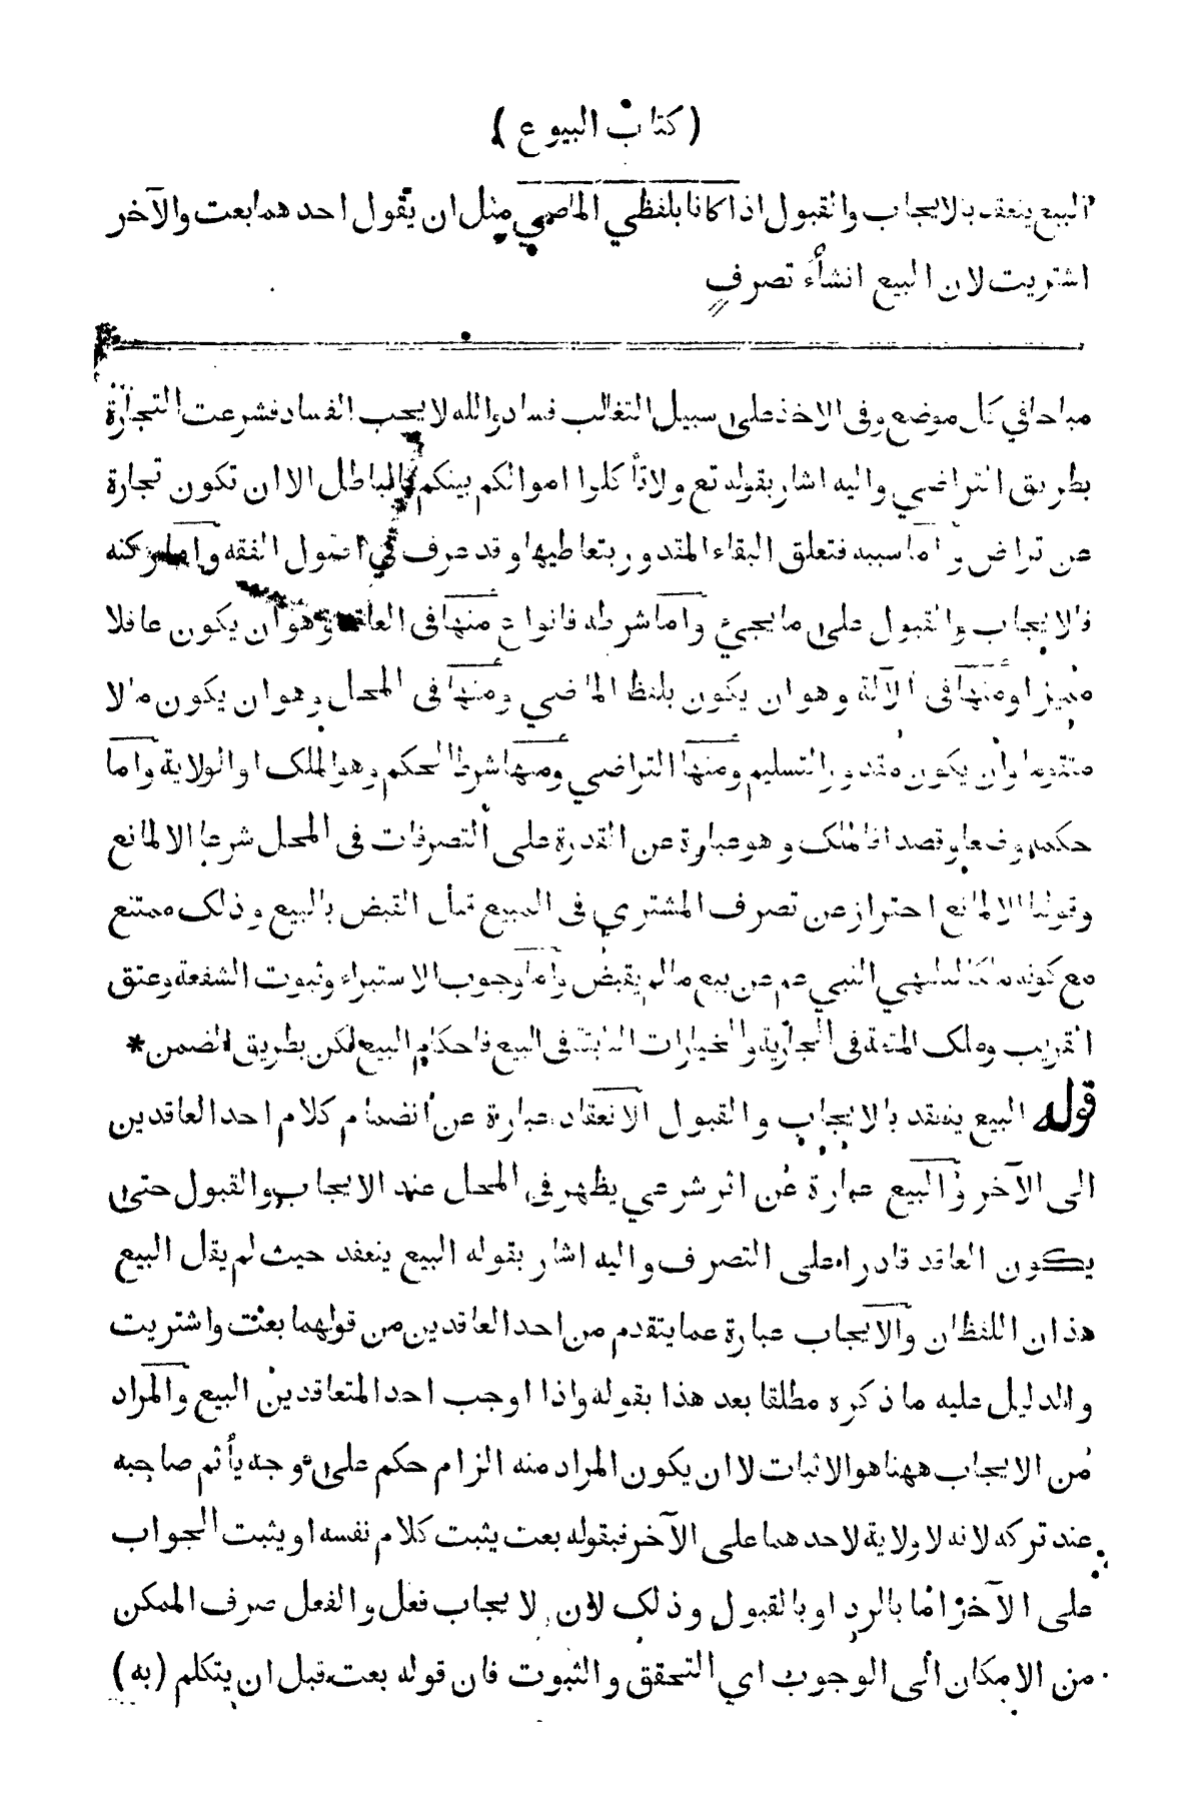 (كتاب البيوع)
البيع ينعقد بالايجاب والقبول اذا كانا بلفظي الماضي مثل ان يقول احدهما بعت والآخر
اشتريت لان البيع انشاء تصرف
مباحا في كل موضع وفى الاخذ على سبيل التغالب فساد والله لا يحب الفساد فشرعت التجارة
بطريق التراضي واليه اشار بقوله تع ولا تأكلوا اموالكم بينكم بالباطل الا ان تكون تجارة
عن تراض واما سببه فتعلق البقاء المقدور بتعاطيها وقد عرف في اصول الفقه واما ركنه
فالايجاب والقبول على ما يجيء واما شرطه فانواع منها فى العاقد وهو ان يكون عاقلا
مميزا ومنها فى الآلة وهو ان يكون بلفظ الماضي ومنها فى المحل وهو ان يكون مالا
متقوما وان يكون مقدور التسليم ومنها التراضي ومنها شرط الحكم وهو الملك او الولاية واما
حكمه وضعا وقصدا فالملك وهو عبارة عن القدرة على التصرفات فى المحل شرعا الا لمانع
وقولنا الا لمانع احتراز عن تصرف المشتري فى المبيع قبل القبض بالبيع وذلك ممتنع
مع كونه مالكا لنهي النبي عم عن بيع ما لم يقبض واما وجوب الاستبراء وثبوت الشفعة وعتق
القريب وملك المتعة فى الجارية والخيارات الثابتة فى البيع فاحكام البيع لكن بطريق الضمن *
قوله البيع ينعقد بالايجاب والقبول الانعقاد عبارة عن انضمام كلام احد العاقدين
الى الآخر والبيع عبارة عن اثر شرعي يظهر فى المحل عند الايجاب والقبول حتى
يكون العاقد قادرا على التصرف واليه اشار بقوله البيع ينعقد حيث لم يقل البيع
هذان اللفظان والايجاب عبارة عما يتقدم من احد العاقدين من قولهما بعت واشتريت
والدليل عليه ما ذكره مطلقا بعد هذا بقوله واذا اوجب احد المتعاقدين البيع والمراد
من الايجاب ههنا هو الاثبات لا ان يكون المراد منه الزام حكم على وجه يأثم صاحبه
عند تركه لانه لا ولاية لاحدهما على الآخر فبقوله بعت يثبت كلام نفسه او يثبت الجواب
على الآخر اما بالرد او بالقبول وذلك لان الايجاب فعل والفعل صرف الممكن
من الامكان الى الوجوب اي التحقق والثبوت فان قوله بعت قبل ان يتكلم (به)